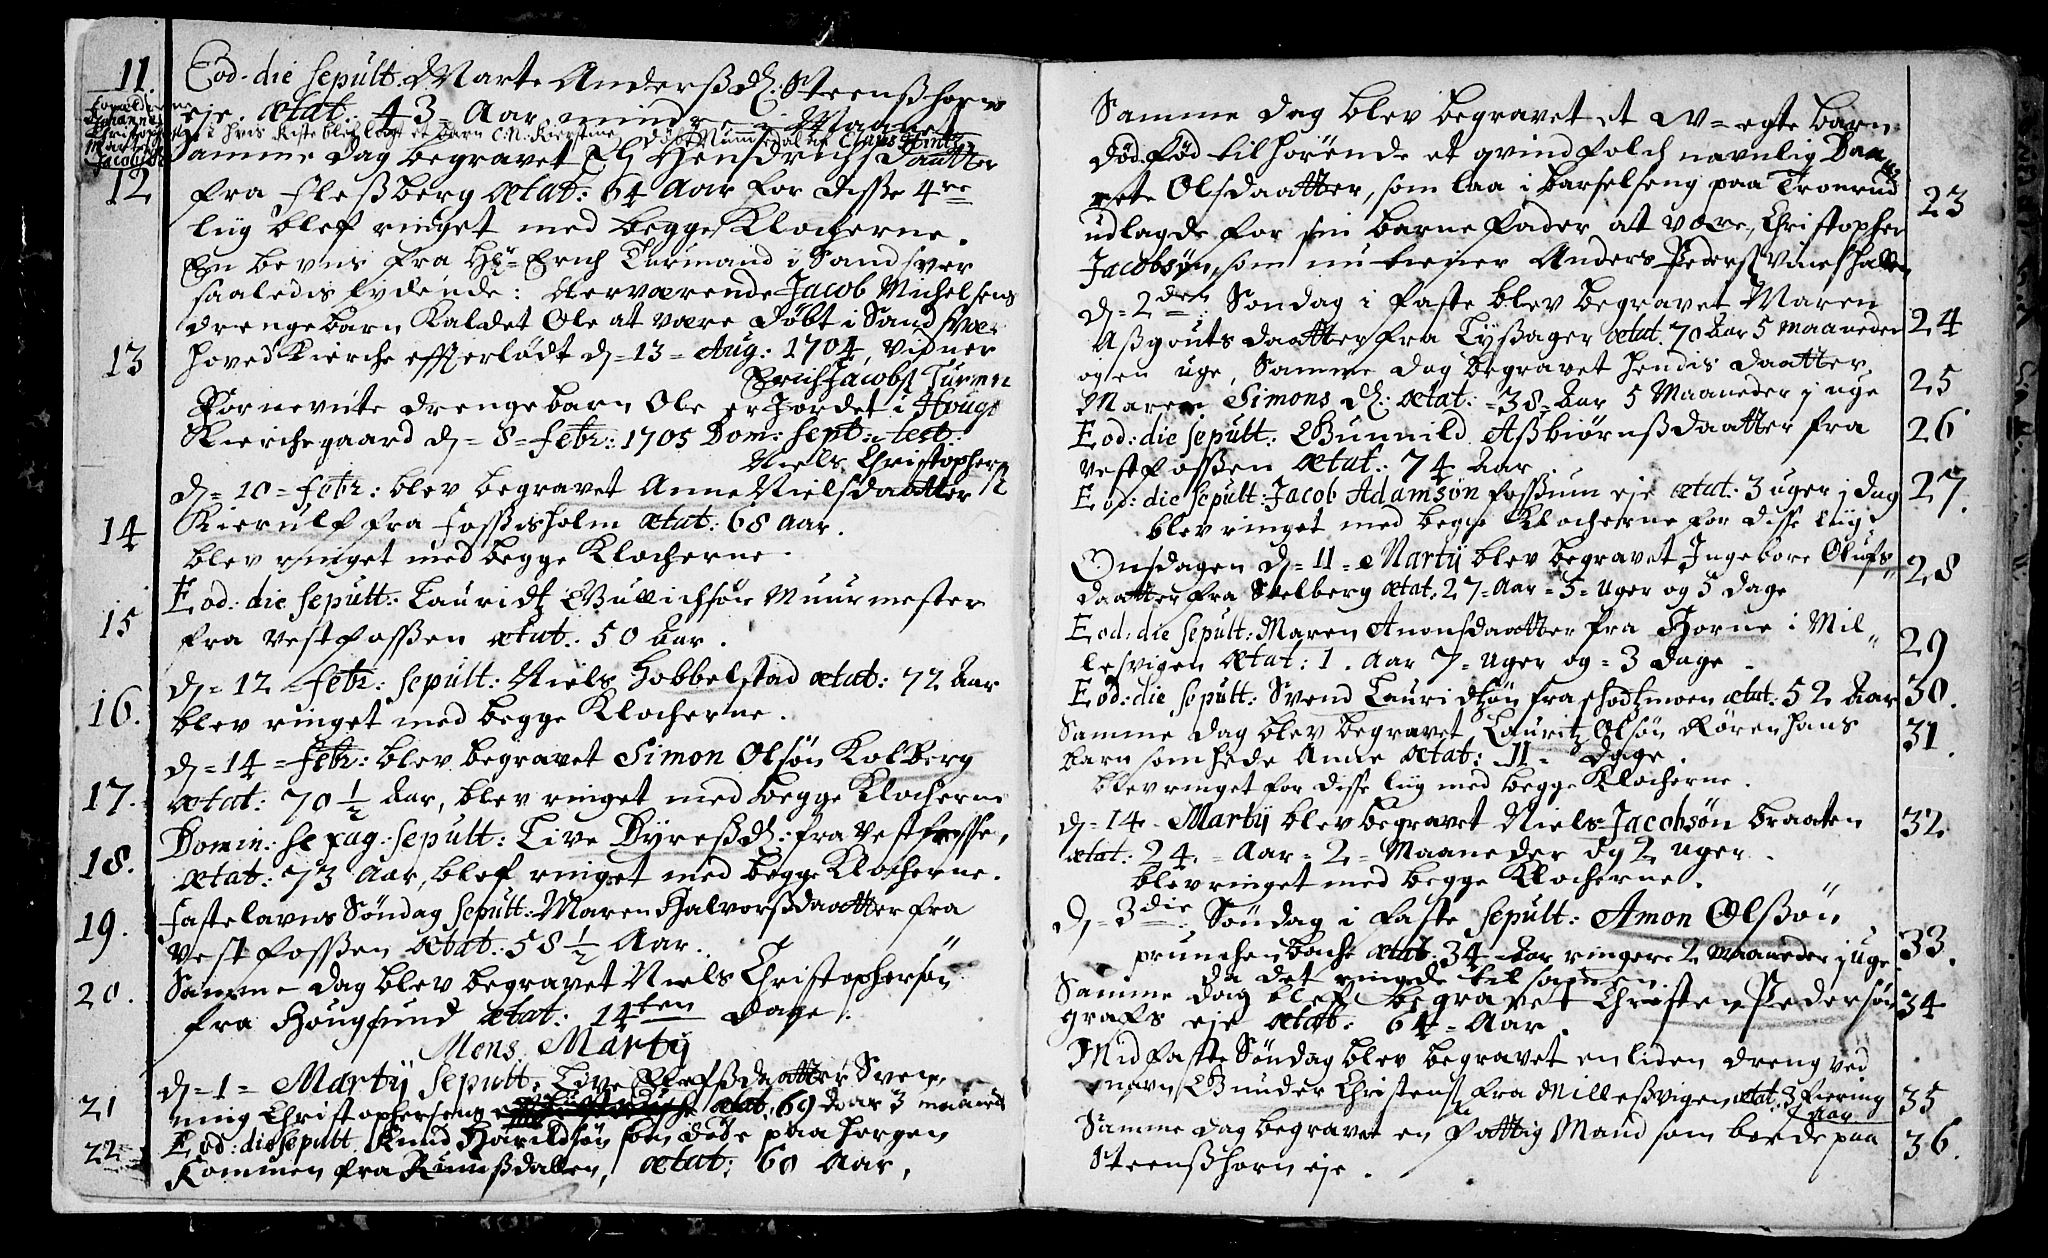 11. Eod. die sepult. Marte Anderßd: Steenßhorn
eje. ætat. 43 = Aar mindre 2 Maaned
i hvis Kiste blev lagt et barn C.N. Kierstine
Johannes
Christophers
Marte
Jacobsd
Samme dag begravet Hendrichsdaatter
12 fra Fleßberg ætat: 64 Aar for disse 4re
liig blef ringet med begge Klocherne.
En bevis fra Hr= Erich Turmand i Sandsver
saaledis lydende: Nerværende Jacob Michelsens
drengebarn Kaldet Ole at være døbt i Sandsvær
13 hoved Kierche efterlødt d=13= Aug: 1704, vidner
Erich Jacobs Turman
Fornevnte drengebarn Ole er Jordet i Hougs
Kierchegaard d= 8= febr: 1705 Dom: Sept: test:
Niels Christophers
d= 10= febr: blev begravet Anne Nielsdaatter
14 Kierulf fra Fossisholm ætat: 68 Aar.
blev ringet med begge Klocherne.
Eod: die sepult: Lauridtz Gullichsøn Muurmester
15 fra Vestfossen ætat. 50 Aar.
d= 12 febr: sepult: Niels Hobbelstad ætat: 72 Aar
16. blev ringet med begge Klocherne.
d= 14= febr: blev begravet Simon Olsøn Kolberg
17. ætat: 70 1/2 Aar, blev ringet med begge Klocherne
Domin: Sexag: sepult: Live Dyreßd: fra Vestfosse,
18. ætat: 73 Aar, blef ringet med begge Klocherne.
19. Fastelavns Søndag sepult: Maren Halvorßdaatter fra
Vestfossen ætat. 58 1/2 Aar.
20. Samme dag blev begravet Niels Christophersøn
fra Hougsund ætat: 14ten dage.
Mens. Martij
d= 1= Martij sepult: Live Olefßdaatter Sven,
21 ning Christophersens ætat. 69 Aar 3 maaned
22 Eod: die sepult. Knud Harildsøn som døde paa
Kommen fra Rumßdallen, ætat: 60 Aar,
Samme dag blev begravet et U=egte barn
dødfød tilhørende et qvindfolch navnlig
rete Olsdaatter, som laa i barselseng paa Tronrud 23
udlagde for sin barnefader at være, Christopher
Jacobsøn, som nu tiener Anders Peders
d= 2den Søndag i faste blev begravet Maren 24
Aßgouts daatter fra Tyßager ætat. 70 Aar 5 maaneder
og en uge, Samme dag begravet hendis daatter,
Maren Simons d: ætat: =38= Aar 5 Maaneder j uge 25
Eod: die sepult: Gunnild Aßbiørnßdaatter fra 26
Vestfossen ætat: 74 Aar
Eod: die sepult: Jacob Adamsøn Fossum eje ætat: 3 uger j dag 27.
blev ringet med begge Klocherne for disse liig.
Onsdagen d= 11= Martij blev begravet Ingebore Olufs 28
daatter fra Stelberg ætat. 27= Aar= 3= uger og 5 dage
Eod: die sepult: Maren Anonsdaatter fra Horne i Mil 29
lesvigen ætat: 1. Aar 7= uger og= 3 dage.
Eod: die sepult: Svend Lauridtzøn fra Skodtzmoen ætat: 52 Aar 30.
Samme dag blev begravet Lauritz Olsøn Røren hans 31.
barn som hede Anne ætat: 11= dage.
blev ringet for disse liig med begge Klocherne.
d= 14. Martij blev begravet Niels Jacobsøn braaten 32.
ætat: 24= Aar= 2= Maaneder og 2 uger.
blev ringet med begge Klocherne.
d= 3die Søndag i faste sepult: Amon Olßøn
ætat. 34 Aar ringere 2 maaneder j uge 33.
da det ringede til sammen
Samme dag blef begravet Christen Pedersøn 34
grafs eje ætat: 64= Aar.
Midfaste Søndag blev begravet en liden dreng ved
navn Gunder Christens fra Milleßvigen ætat. 3 fiering 35
Aar
Samme dag begravet en fattig Mand som boede paa 36.
Steenßhorn eje.